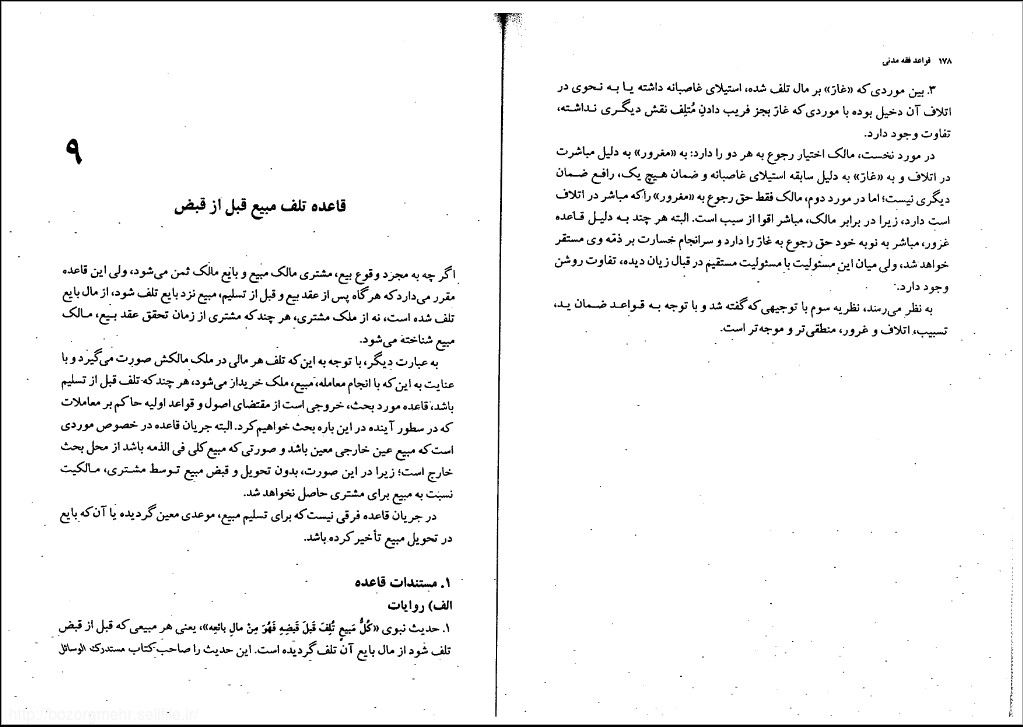 ۱۷۸ قواعد فقه مدنی
۳. بین موردی که «غارّ» بر مال تلف شده، استیلای غاصبانه داشته یا به نحوی در
اتلاف آن دخیل بوده با موردی که غارّ بجز فریب دادنِ مُتلِف نقش دیگری نداشته،
تفاوت وجود دارد.
در مورد نخست، مالک اختیار رجوع به هر دو را دارد: به «مغرور» به دلیل مباشرت
در اتلاف و به «غارّ» به دلیل سابقه استیلای غاصبانه و ضمان هیچ یک، رافع ضمان
دیگری نیست؛ اما در مورد دوم، مالک فقط حق رجوع به «مغرور» را که مباشر در اتلاف
است دارد، زیرا در برابر مالک، مباشر اقوا از سبب است. البته هر چند به دلیل قاعده
غرور، مباشر به نوبه خود حق رجوع به غارّ را دارد و سرانجام خسارت بر ذمّه وی مستقر
خواهد شد، ولی میان این مسئولیت با مسئولیت مستقیم در قبال زیان دیده، تفاوت روشن
وجود دارد.
به نظر می‌رسد، نظریه سوم با توجیهی که گفته شد و با توجه به قواعد ضمان ید،
تسبیب، اتلاف و غرور، منطقی‌تر و موجه‌تر است.
۹
قاعده تلف مبیع قبل از قبض
اگر چه به مجرد وقوع بیع، مشتری مالک مبیع و بایع مالک ثمن می‌شود، ولی این قاعده
مقرر می‌دارد که هرگاه پس از عقد بیع و قبل از تسلیم، مبیع نزد بایع تلف شود، از مال بایع
تلف شده است، نه از ملک مشتری، هر چند که مشتری از زمان تحقق عقد بیع، مالک
مبیع شناخته می‌شود.
به عبارت دیگر، با توجه به این که تلف هر مالی در ملک مالکش صورت می‌گیرد و با
عنایت به این که با انجام معامله، مبیع، ملک خریدار می‌شود، هر چند که تلف قبل از تسلیم
باشد، قاعده مورد بحث، خروجی است از مقتضای اصول و قواعد اولیه حاکم بر معاملات
که در سطور آینده در این باره بحث خواهیم کرد. البته جریان قاعده در خصوص موردی
است که مبیع عین خارجی معین باشد و صورتی که مبیع کلی فی الذمه باشد از محل بحث
خارج است؛ زیرا در این صورت، بدون تحویل و قبض مبیع توسط مشتری، مالکیت
نسبت به مبیع برای مشتری حاصل نخواهد شد.
در جریان قاعده فرقی نیست که برای تسلیم مبیع، موعدی معین گردیده یا آن که بایع
در تحویل مبیع تأخیر کرده باشد.
۱. مستندات قاعده
الف) روایات
۱. حدیث نبوی «کُلُّ مَبیعٍ تُلِفَ قَبلَ قَبضِهِ فَهُوَ مِنْ مالِ بائعِه»، یعنی هر مبیعی که قبل از قبض
تلف شود از مال بایع آن تلف گردیده است. این حدیث را صاحب کتاب مستدرک الوسائل